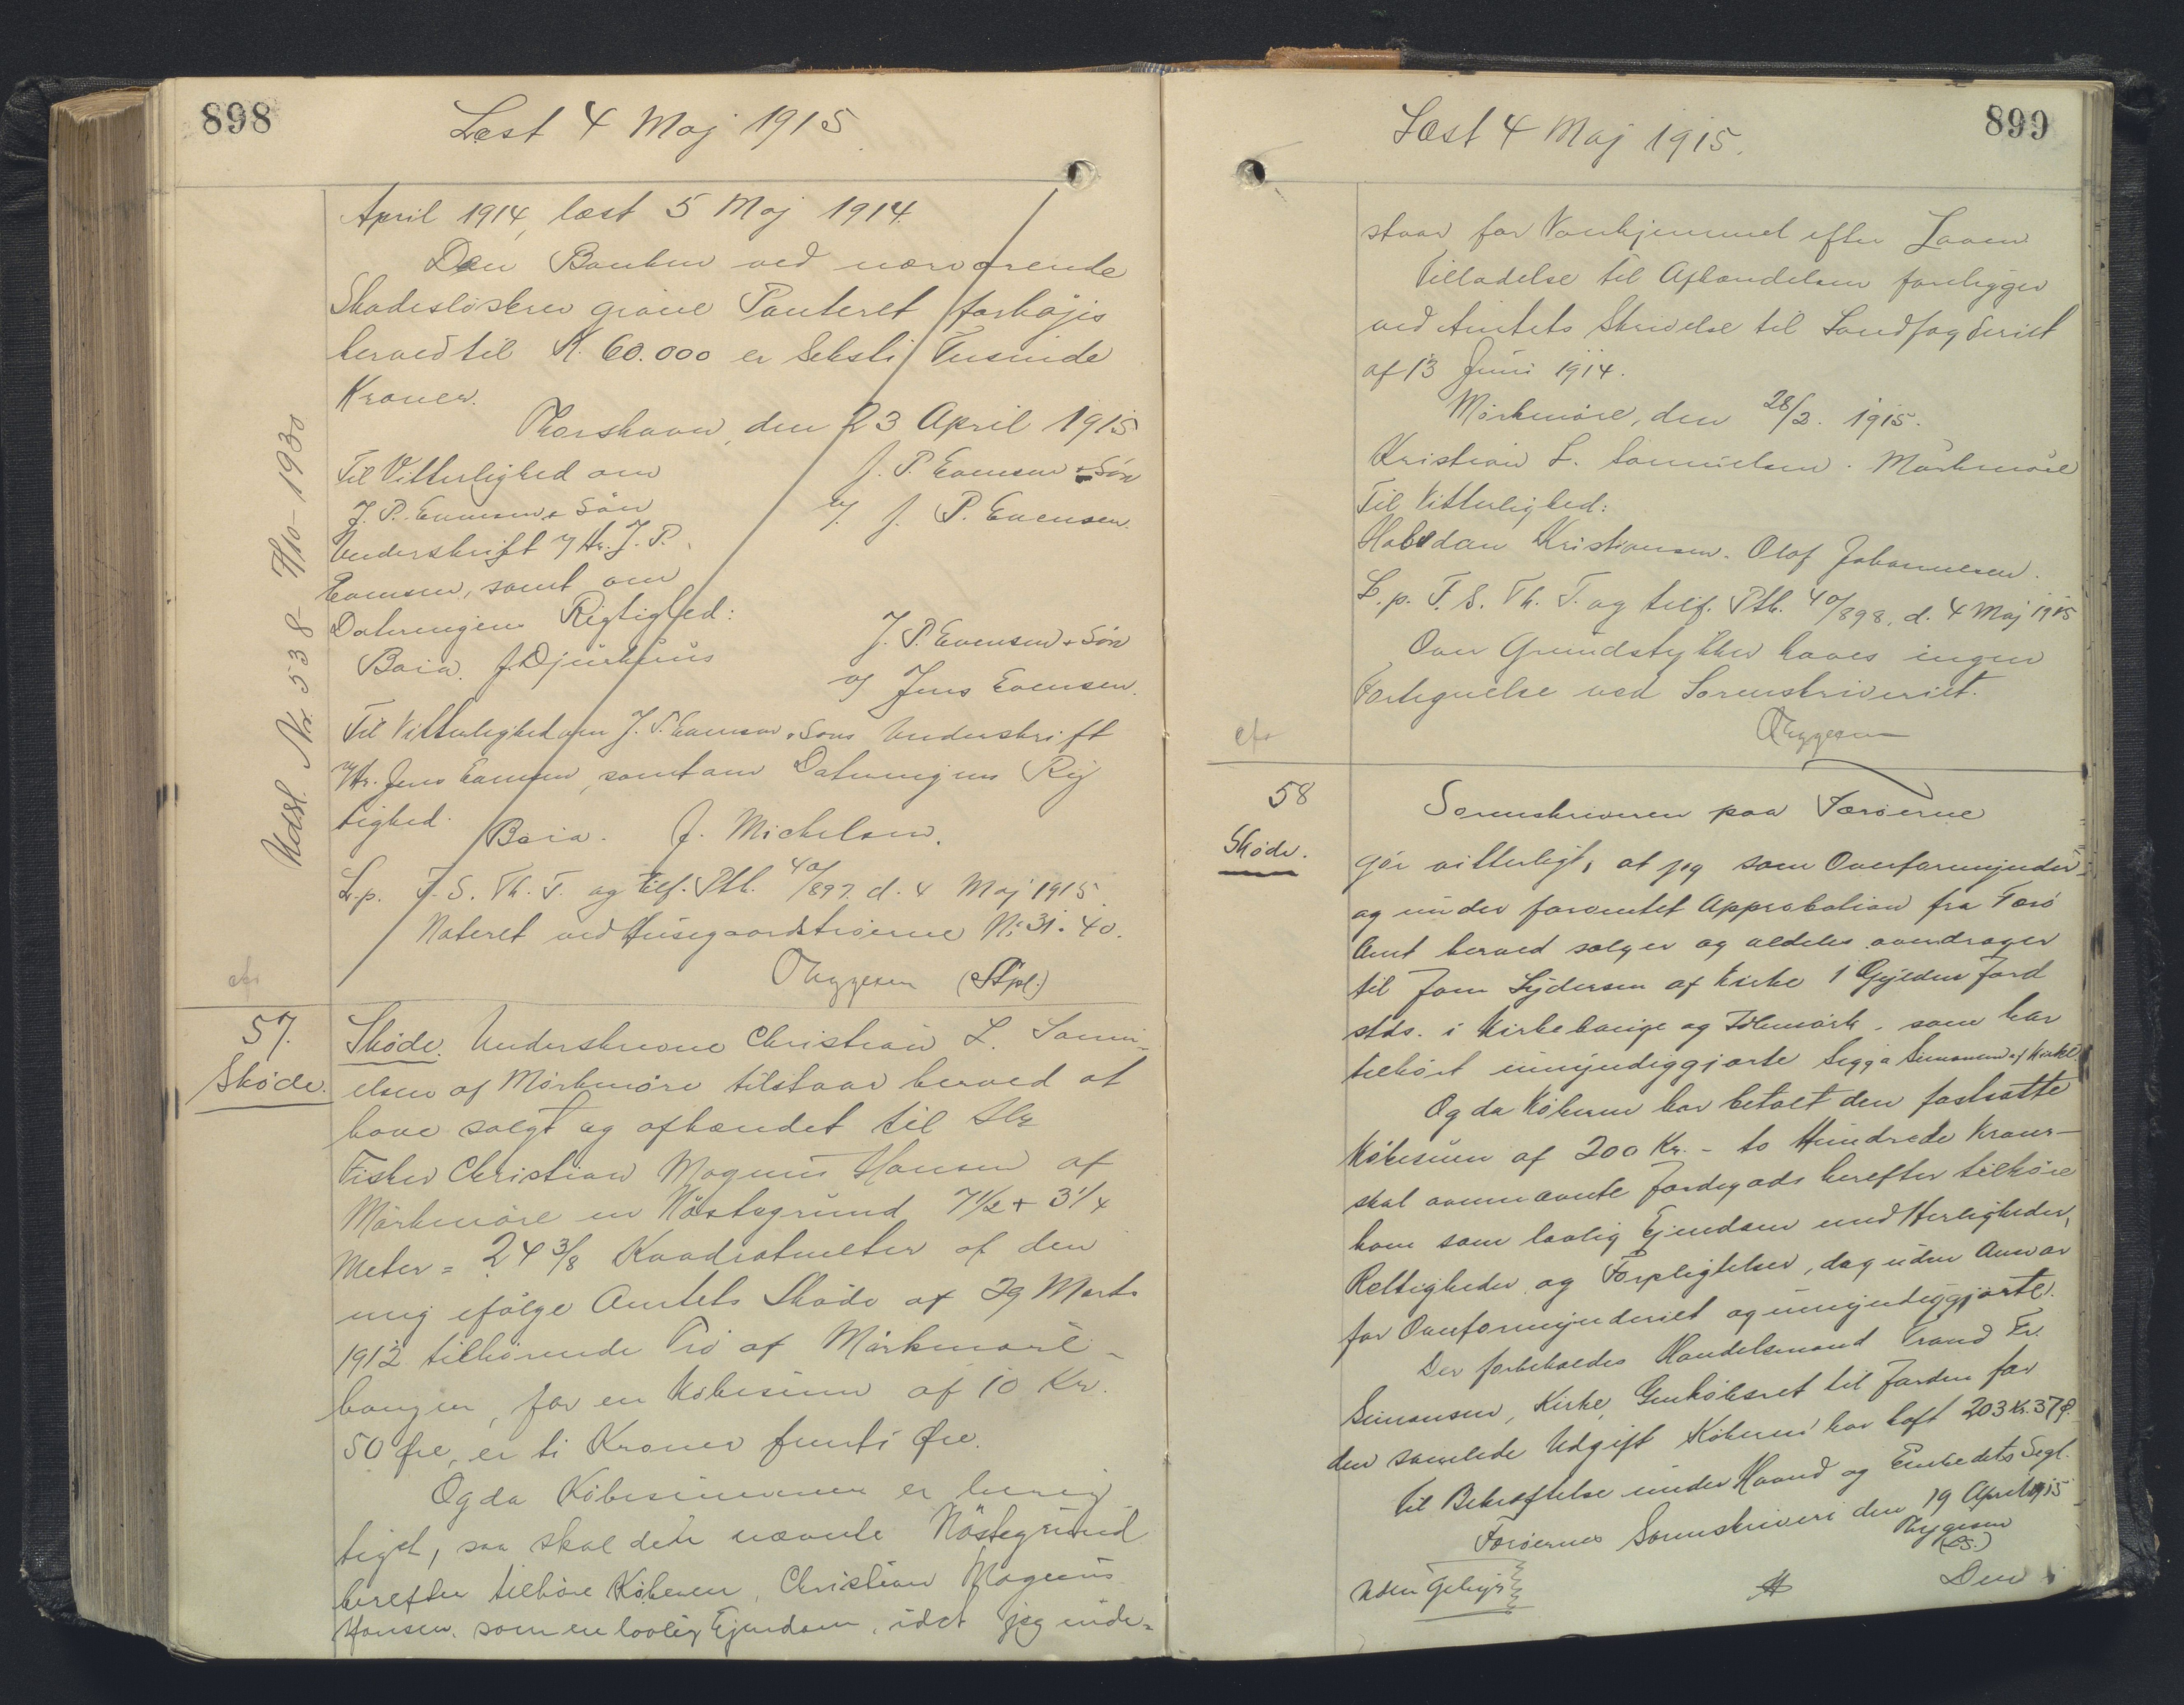 898
Læst 4 Maj 1915
Udsl. Nr. 538 1930
April 1914, læst 5 Maj 1914.
Den Banken ved nærværende
Skadesløsbrev givne Panteret forhøjes
herved til K. 60.000 er Seksti Tusinde
Kroner.
Thorshavn, den 23 April 1915
Til Vitterlighed om
J. P. Evensen & Søn
J. P. Evensen & Søn
v/ J. P. Evensen.
Underskrift v/ Hr. J. P.
Evensen, samt om
Dateringens Rigtighed:
J. P. Evensen & Søn
Baia. J. Djurhuus
v/ Jens Evensen.
Til Vitterlighed om J. P. Evensen & Søns Underskrift
v/ Hr. Jens Evensen, samt om Dateringens Rig
tighed.
Baia. J. Michelsen.
L.p. F. S. Th. T. og tilf. Ptb. 40/897. d. 4 Maj 1915.
Noteret ved Husegaardstrøerne Nr. 31. 40.
Thygesen (Stpl.)
cfr
57.
Skøde.
Skøde. Underskrevne Christian L. Samu-
elsen af Mørkenøre tilstaar herved at
have solgt og afhændet til Hr
Fisker Christian Magnus Hansen af
Mörkenöre en Nöstegrund 7 1/2 + 3 1/4
Meter = 24 3/8 Kvadratmeter af den
mig ifølge Amtets Skøde af 29 Marts
1912 tilhørende Trø af Mörkenöre-
haugen, for en Købesum af 10 Kr.
50 Øre, er ti Kroner femti Øre.
Og da Købesummen er berig
tiget, saa skal den nævnte Nöstegrund
herefter tilhøre Køberen, Christian Magnus
Hansen, som en lovlig Ejendom, idet jeg inde-
899
Læst 4 Maj 1915.
staar for Vanhjemmel efter Loven
Tilladelse til Afhændelsen foreligger
ved Amtets Skrivelse til Landfogderiet
af 13 Juni 1914.
Mörkenöre, den 28/2. 1915.
Kristian L. Samuelsen. Mörkenöre
Til Vitterlighed:
Halvdan Kristiansen. Olaf Johannesen.
L.p. F. S. Th. T. og tilf. Ptb. 40/898, d. 4 Maj 1915
Over Grundstykker haves ingen
Fortegnelse ved Sorenskriveriet.
Thygesen
cfr
58
Skøde.
Sorenskriveren paa Færøerne
gør vitterligt, at jeg som Overformynder
og under forventet Approbation fra Færø
Amt herved sælger og aldeles overdrager
til Joen Lydersen af Kirke 1 Gylden Jord
stds. i Kirkehauge og Ilemørk, som har
tilhørt umyndiggjorte Sigga Simonsen af Kirke
Og da Køberen har betalt den fastsatte
Købesum af 200 Kr. - to Hundrede Kroner-
skal ovennævnte Jordegods herefter tilhøre
ham som lovlig Ejendom med Herligheder,
Rettigheder og Forpligtelser, dog uden Ansvar
for Overformynderiet og umyndiggjorte.
Der forbeholdes Handelsmand Trond Fr.
Simonsen, Kirke, Genkøbsret til Jorden for
den samlede Udgift Køberen har haft 203 Kr. 37 Ø.
Til Bekræftelse under Haand og Embedets Segl.
Færøernes Sorenskriveri den 19 April 1915
Thygesen
(L.S.)
Uden Gebyr
Den